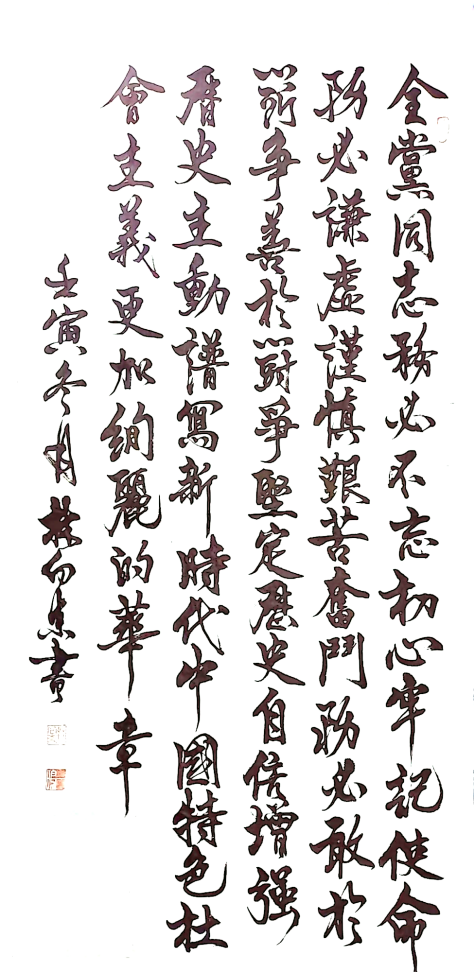 全黨同志務必不忘初心牢記使命
務必謙虛謹慎艱苦奮鬥務必敢於
鬥爭善於鬥爭堅定歷史自信增強
曆史主動譜寫新時代中國特色社
會主義更加絢麗的華章
壬寅冬月 書